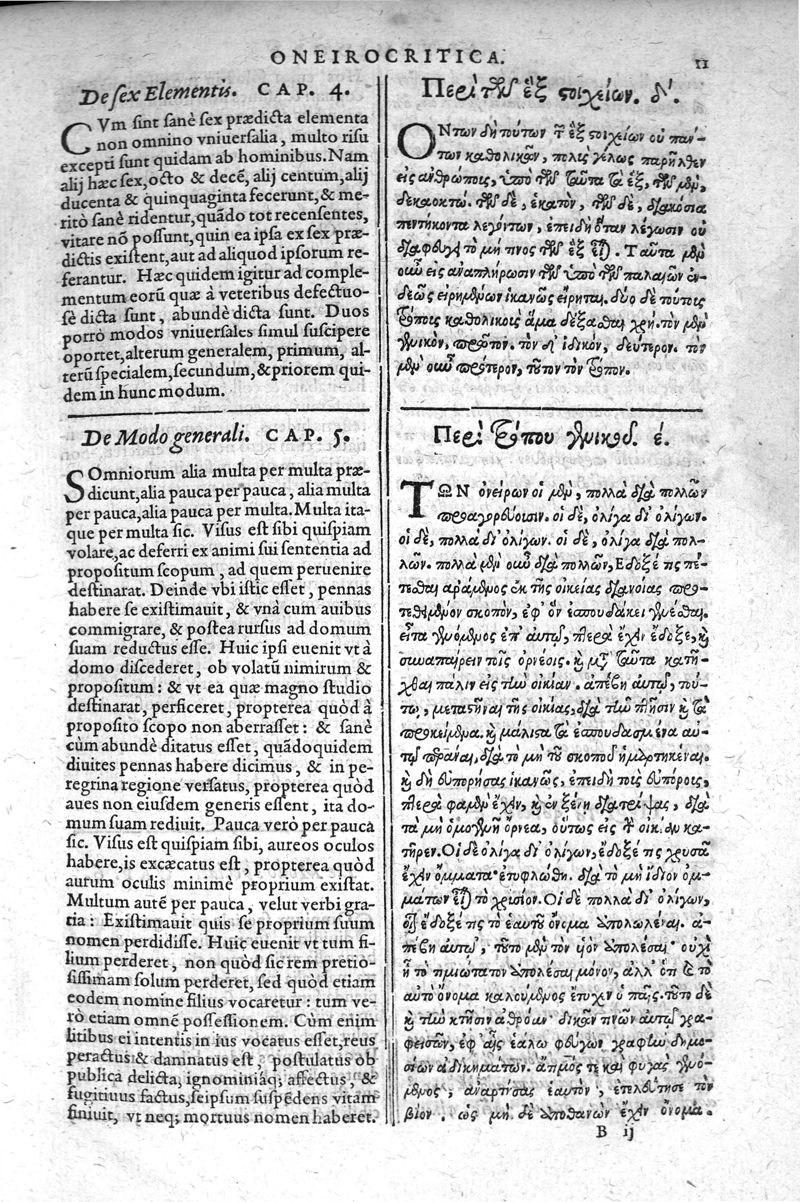 ONEIROCRITICA.
11
De sex Elementis. CAP. 4.
CVm sint sanè sex prædicta elementa
non omnino vniuersalia, multo risu
excepti sunt quidam ab hominibus. Nam
alij hæc sex, octo & decē, alij centum, alij
ducenta & quinquaginta fecerunt, & me-
ritò sanè ridentur, quādo tot recensentes,
vitare nō possunt, quin ea ipsa ex sex præ-
dictis existent, aut ad aliquod ipsorum re-
ferantur. Hæc quidem igitur ad comple-
mentum eorū quæ à veteribus defectuo-
sè dicta sunt, abundè dicta sunt. Duos
porrò modos vniuersales simul suscipere
oportet, alterum generalem, primum, al-
terū specialem, secundum, & priorem qui-
dem in hunc modum.
De Modo generali. CAP. 5.
SOmniorum alia multa per multa præ-
dicunt, alia pauca per pauca, alia multa
per pauca, alia pauca per multa. Multa ita-
que per multa sic. Visus est sibi quispiam
volare, ac deferri ex animi sui sententia ad
propositum scopum, ad quem peruenire
destinarat. Deinde vbi istic esset, pennas
habere se existimauit, & vnà cum auibus
commigrare, & postea rursus ad domum
suam reductus esse. Huic ipsi euenit vt à
domo discederet, ob volatū nimirum &
propositum: & vt ea quæ magno studio
destinarat, perficeret, propterea quòd à
proposito scopo non aberrasset: & sanè
cùm abundè ditatus esset, quādoquidem
diuites pennas habere dicimus, & in pe-
regrina regione versatus, propterea quòd
aues non eiusdem generis essent, ita do-
mum suam rediuit. Pauca verò per pauca
sic. Visus est quispiam sibi, aureos oculos
habere, is excæcatus est, propterea quòd
aurum oculis minimè proprium existat.
Multum autē per pauca, velut verbi gra-
tia: Existimauit quis se proprium suum
nomen perdidisse. Huic euenit vt tum fi-
lium perderet, non quòd sic rem pretio-
sissimam solum perderet, sed quòd etiam
eodem nomine filius vocaretur: tum ve-
rò etiam omnē possessionem. Cùm enim
litibus ei intentis in ius vocatus esset, reus
peractus & damnatus est, postulatus ob
publica delicta, ignominiaq; affectus, &
fugitiuus factus, seipsum suspēdens vitam
finiuit, vt neq; mortuus nomen haberet.
Περὶ τῶν ἓξ στοιχείων. δʹ.
ΟΝτων δὴ τούτων τῶν ἓξ στοιχείων οὐ πάν-
των καθολικῶν, πολὺς γέλως παρῆλθεν
εἰς ἀνθρώποις, ὑπὸ τῶν ταῦτα τὰ ἓξ, τῶν μὲν,
δεκαοκτώ. τῶν δὲ, ἑκατὸν, τῶν δὲ, διακόσια
πεντήκοντα λεγόντων, ἐπειδὴ ὅταν λέγωσιν οὐ
διαφυγεῖν τὸ μή τινος τῶν ἓξ εἶναι. Ταῦτα μὲν
οὖν εἰς ἀναπλήρωσιν τῶν ὑπὸ τῶν παλαιῶν ἐν-
δεῶς εἰρημένων ἱκανῶς εἴρηται. δύο δὲ τούτοις
τρόποις καθολικοῖς ἅμα δέξασθαι χρή. τὸν μὲν
γενικὸν, πρῶτον. τὸν δʹ ἰδικὸν, δεύτερον. τὸν
μὲν οὖν πρότερον, τοῦτον τὸν τρόπον.
Περὶ τρόπου γενικοῦ. έ.
ΤΩΝ ὀνείρων οἱ μὲν, πολλὰ διὰ πολλῶν
προαγορεύουσιν. οἱ δὲ, ὀλίγα δι' ὀλίγων.
οἱ δὲ, πολλὰ δι' ὀλίγων. οἱ δὲ, ὀλίγα διὰ πολ-
λῶν. πολλὰ μὲν οὖν διὰ πολλῶν, Εδοξέ τις πέ-
τεσθαι ἀράμενος ἐκ τῆς οἰκείας διανοίας προ-
τεθειμένον σκοπὸν, ἐφ' ὃν ἐσπουδάκει γενέσθαι.
εἶτα γενόμενος ἐπ' αὐτῷ, πτερὰ ἔχειν ἔδοξε, καὶ
συναπαίρειν τοῖς ὀρνέοις. καὶ μετὰ ταῦτα κατῆ-
χθαι πάλιν εἰς τὴν οἰκίαν. ἀπέβη αὐτῷ, τού-
τῳ, μεταστῆναι τῆς οἰκίας, διὰ τὴν πτῆσιν καὶ τὰ
προκείμενα. καὶ μάλιστα τὰ ἐσπουδασμένα αὐ-
τῷ πρᾶναι, διὰ τὸ μὴ τοῦ σκοποῦ ἡμαρτηκέναι.
καὶ δὴ εὐπορήσας ἱκανῶς, ἐπειδὴ τοὺς εὐπόρους,
πτερὰ φαμὲν ἔχειν, καὶ ἐν ξένῃ διατρίψας, διὰ
τὰ μὴ ὁμογενῆ ὄρνεα, οὕτως εἰς τὴν οἰκίαν κα-
τῆρεν. Οἱ δὲ ὀλίγα δι' ὀλίγων, ἔδοξέ τις χρυσᾶ
ἔχειν ὄμματα· ἐτυφλώθη. διὰ τὸ μὴ ἴδιον ὀμ-
μάτων εἶναι τὸ χρυσίον. Οἱ δὲ πολλὰ δι' ὀλίγων,
οἷον ἔδοξέ τις τὸ ἑαυτοῦ ὄνομα ἀπολωλέναι. ἀ-
πέβη αὐτῷ, τοῦτο μὲν τὸν υἱὸν ἀπολέσαι· οὐχὶ
ἢ τὸ τιμιώτατον ἀπολέσαι μόνον, ἀλλ' ὅτι καὶ τὸ
αὐτὸ ὄνομα καλούμενος ἔτυχεν ὁ παῖς. τοῦτο δὲ
καὶ τὴν κτῆσιν ἀθρόαν· δικῶν τινῶν αὐτῷ γρα-
φεισῶν, ἐφ' αἷς ἑάλω φεύγων γραφὴν δημο-
σίων ἀδικημάτων. ἄτιμός τε καὶ φυγὰς γενό-
μενος, ἀναρτήσας ἑαυτὸν, ἐτελεύτησε τὸν
βίον. ὡς μὴ δὲ ἀποθανὼν ἔχειν ὄνομα.
B ij